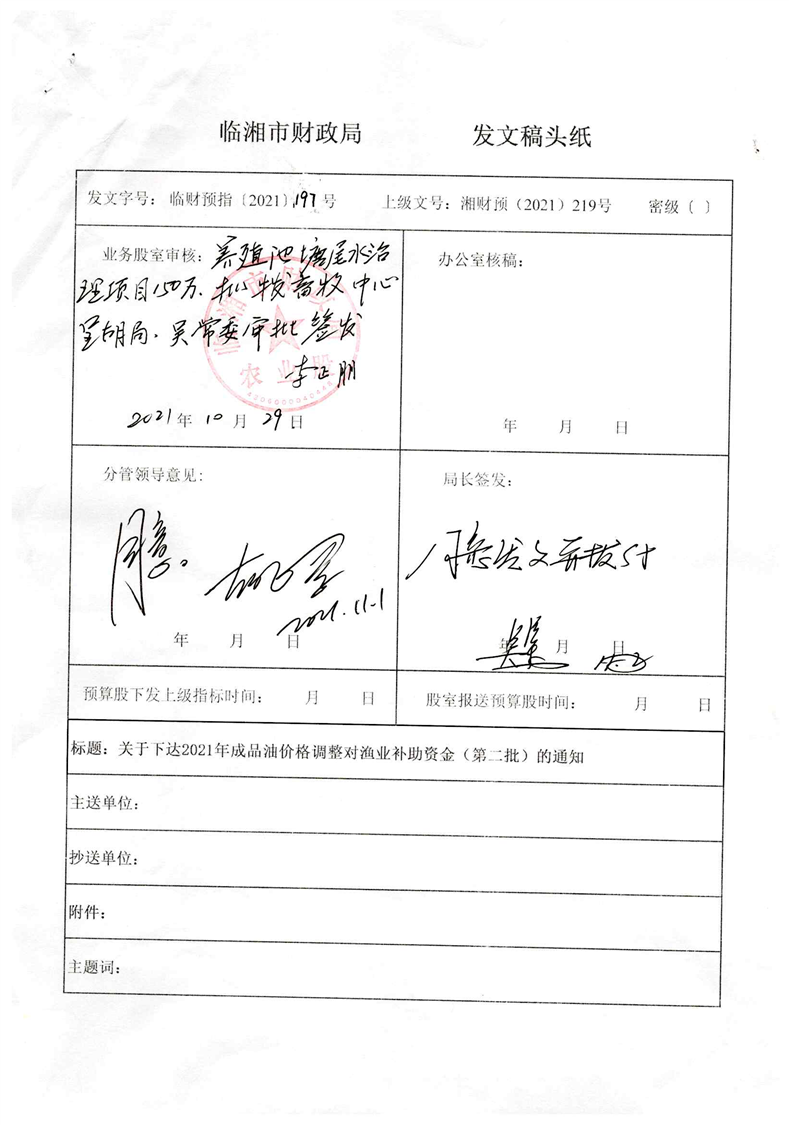 临湘市财政局 发文稿头纸
发文字号：临财预指〔2021〕197号 上级文号：湘财预（2021）219号 密级〔 〕
业务股室审核：养殖池塘尾水治
理项目150万，拟拨畜牧中心
呈胡局、吴常委审批签发
李正朋
农业股
2021年10月29日
办公室核稿：
年 月 日
分管领导意见：
同意。
2021.11.1
年 月 日
局长签发：
同意发文并拨付
年 月 日
预算股下发上级指标时间： 月 日
股室报送预算股时间： 月 日
标题：关于下达2021年成品油价格调整对渔业补助资金（第二批）的通知
主送单位：
抄送单位：
附件：
主题词：